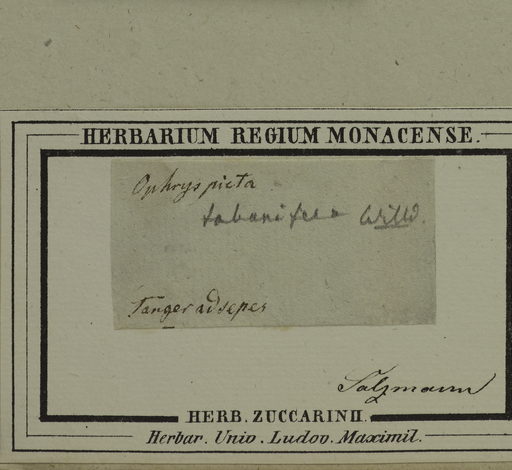 HERBARIUM REGIUM MONACENSE.
Ophrys picta
tabanifera Willd.
Tanger ad sepes
Salzmann
HERB. ZUCCARINII.
Herbar. Univ. Ludov. Maximil.